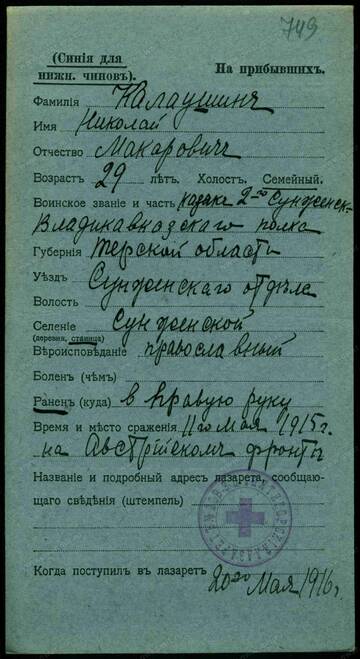 749
(Синія для
нижн. чиновъ).
На прибывшихъ.
Фамилія Калаушинъ
Имя Николай
Отчество Макаровичъ
Возрастъ 29 лѣтъ. Холост. Семейный.
Воинское званіе и часть казакъ 2-го Сунженск-
Владикавказскаго полка
Губернія Терской области
Уѣздъ Сунженскаго отдѣла
Волость
Селеніе Сунженской
(деревня, станица)
Вѣроисповѣданіе православный
Боленъ (чѣмъ)
Раненъ (куда) в правую руку
Время и мѣсто сраженія 11го мая 1915г.
на Австрійскомъ фронтѣ
Названіе и подробный адресъ лазарета, сообщаю-
щаго свѣдѣнія (штемпель)
Когда поступилъ въ лазаретъ 20го Мая 1916г.